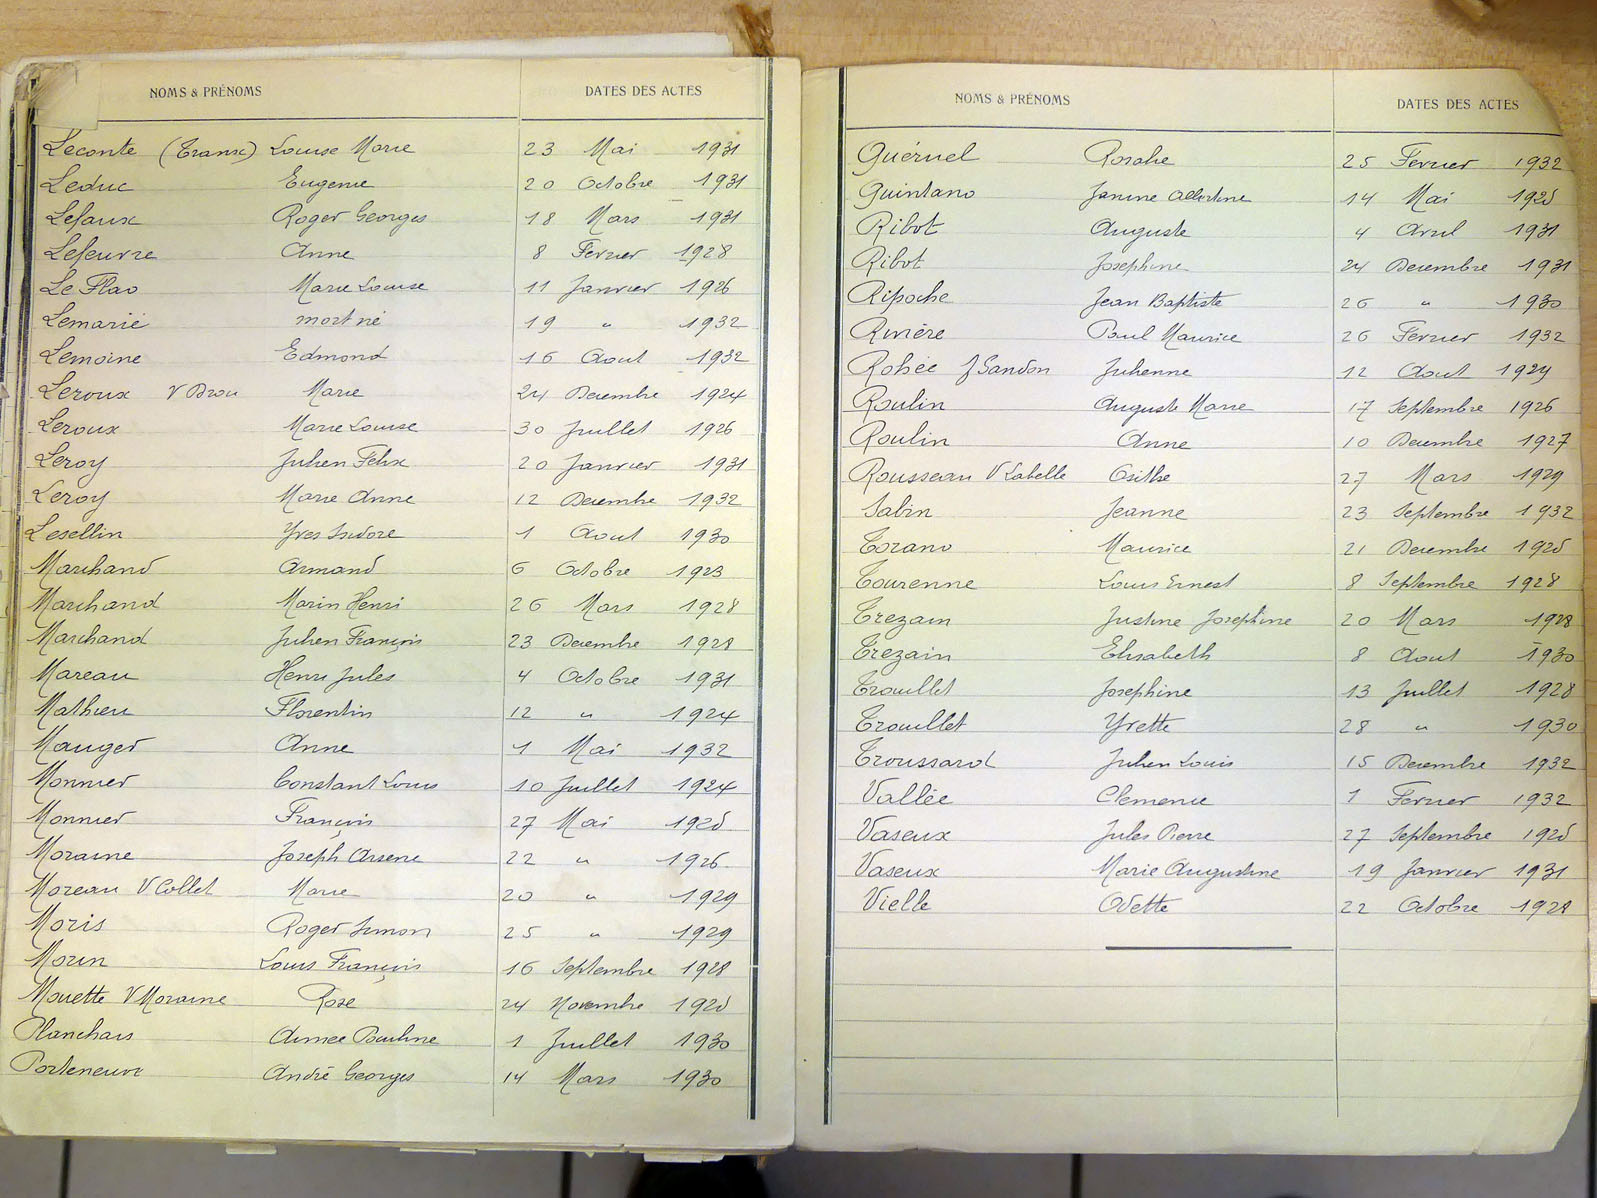 NOMS & PRÉNOMS DATES DES ACTES
Leconte (Transc) Louise Marie 23 Mai 1931
Leduc Eugenie 20 Octobre 1931
Lefaux Roger Georges 18 Mars 1931
Lefeuvre Anne 8 Fevrier 1928
Le Flao Marie Louise 11 Janvier 1926
Lemarié mort né 19 " 1932
Lemoine Edmond 16 Aout 1932
Leroux V Brou Marie 24 Decembre 1924
Leroux Marie Louise 30 Juillet 1926
Leroy Julien Felix 20 Janvier 1931
Leroy Marie Anne 12 Decembre 1932
Lesellin Yves Isidore 1 Aout 1930
Marchand Armand 6 Octobre 1923
Marchand Marin Henri 26 Mars 1928
Marchand Julien François 23 Decembre 1928
Mareau Henri Jules 4 Octobre 1931
Mathieu Florentin 12 " 1924
Mauger Anne 1 Mai 1932
Monnier Constant Louis 10 Juillet 1924
Monnier François 27 Mai 1925
Moraine Joseph Arsene 22 " 1926
Moreau V Collet Marie 20 " 1929
Moris Roger Simon 25 " 1929
Morin Louis François 16 Septembre 1928
Mouette V Moraine Rose 24 Novembre 1925
Planchais Aimee Pauline 1 Juillet 1930
Porteneuve André Georges 14 Mars 1930
NOMS & PRÉNOMS DATES DES ACTES
Quéruel Rosalie 25 Fevrier 1932
Quintano Janine Albertine 14 Mai 1925
Ribot Auguste 4 Avril 1931
Ribot Josephine 24 Decembre 1931
Ripoche Jean Baptiste 26 " 1930
Rivière Paul Maurice 26 Fevrier 1932
Robée f Sandon Julienne 12 Aout 1929
Roulin Auguste Marie 17 Septembre 1926
Roulin Anne 10 Decembre 1927
Rousseau V Labelle Osithe 27 Mars 1929
Sabin Jeanne 23 Septembre 1932
Torano Maurice 21 Decembre 1925
Tourenne Louis Ernest 8 Septembre 1928
Trezain Justine Josephine 20 Mars 1928
Trezain Elisabeth 8 Aout 1930
Trouillet Josephine 13 Juillet 1928
Trouillet Yvette 28 " 1930
Troussard Julien Louis 15 Decembre 1932
Vallée Clemence 1 Fevrier 1932
Vaseux Jules Pierre 27 Septembre 1925
Vaseux Marie Augustine 19 Janvier 1931
Vielle Odette 22 Octobre 1928